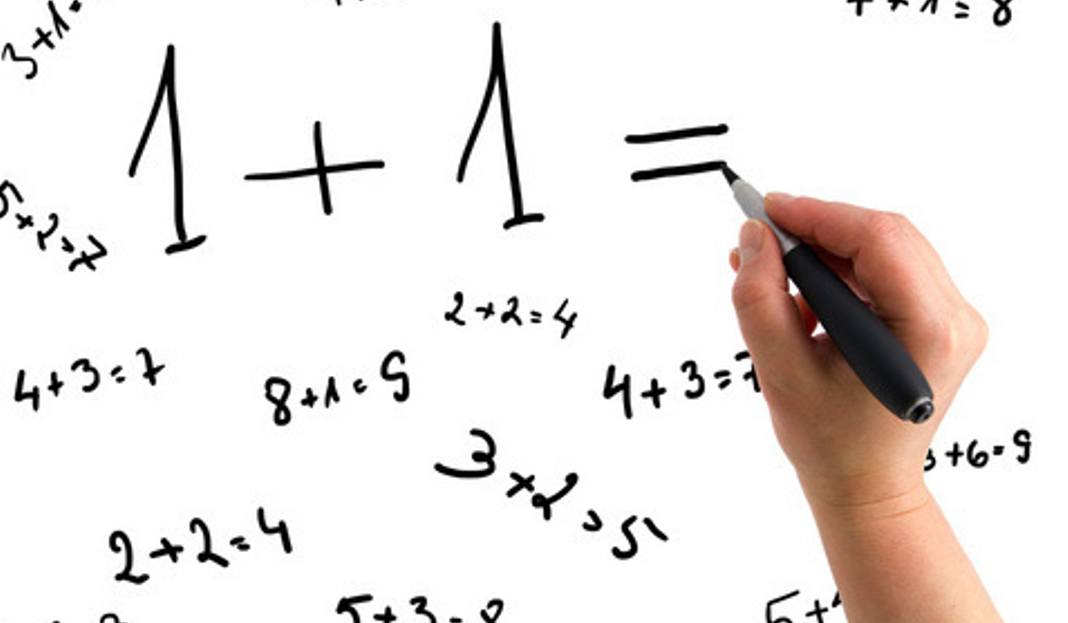 3+1=
+1=8
1+1=
5+2=7
2+2=4
4+3=7
8+1=9
4+3=7
3+2=5
3+6=9
2+2=4
5+3=8
5+